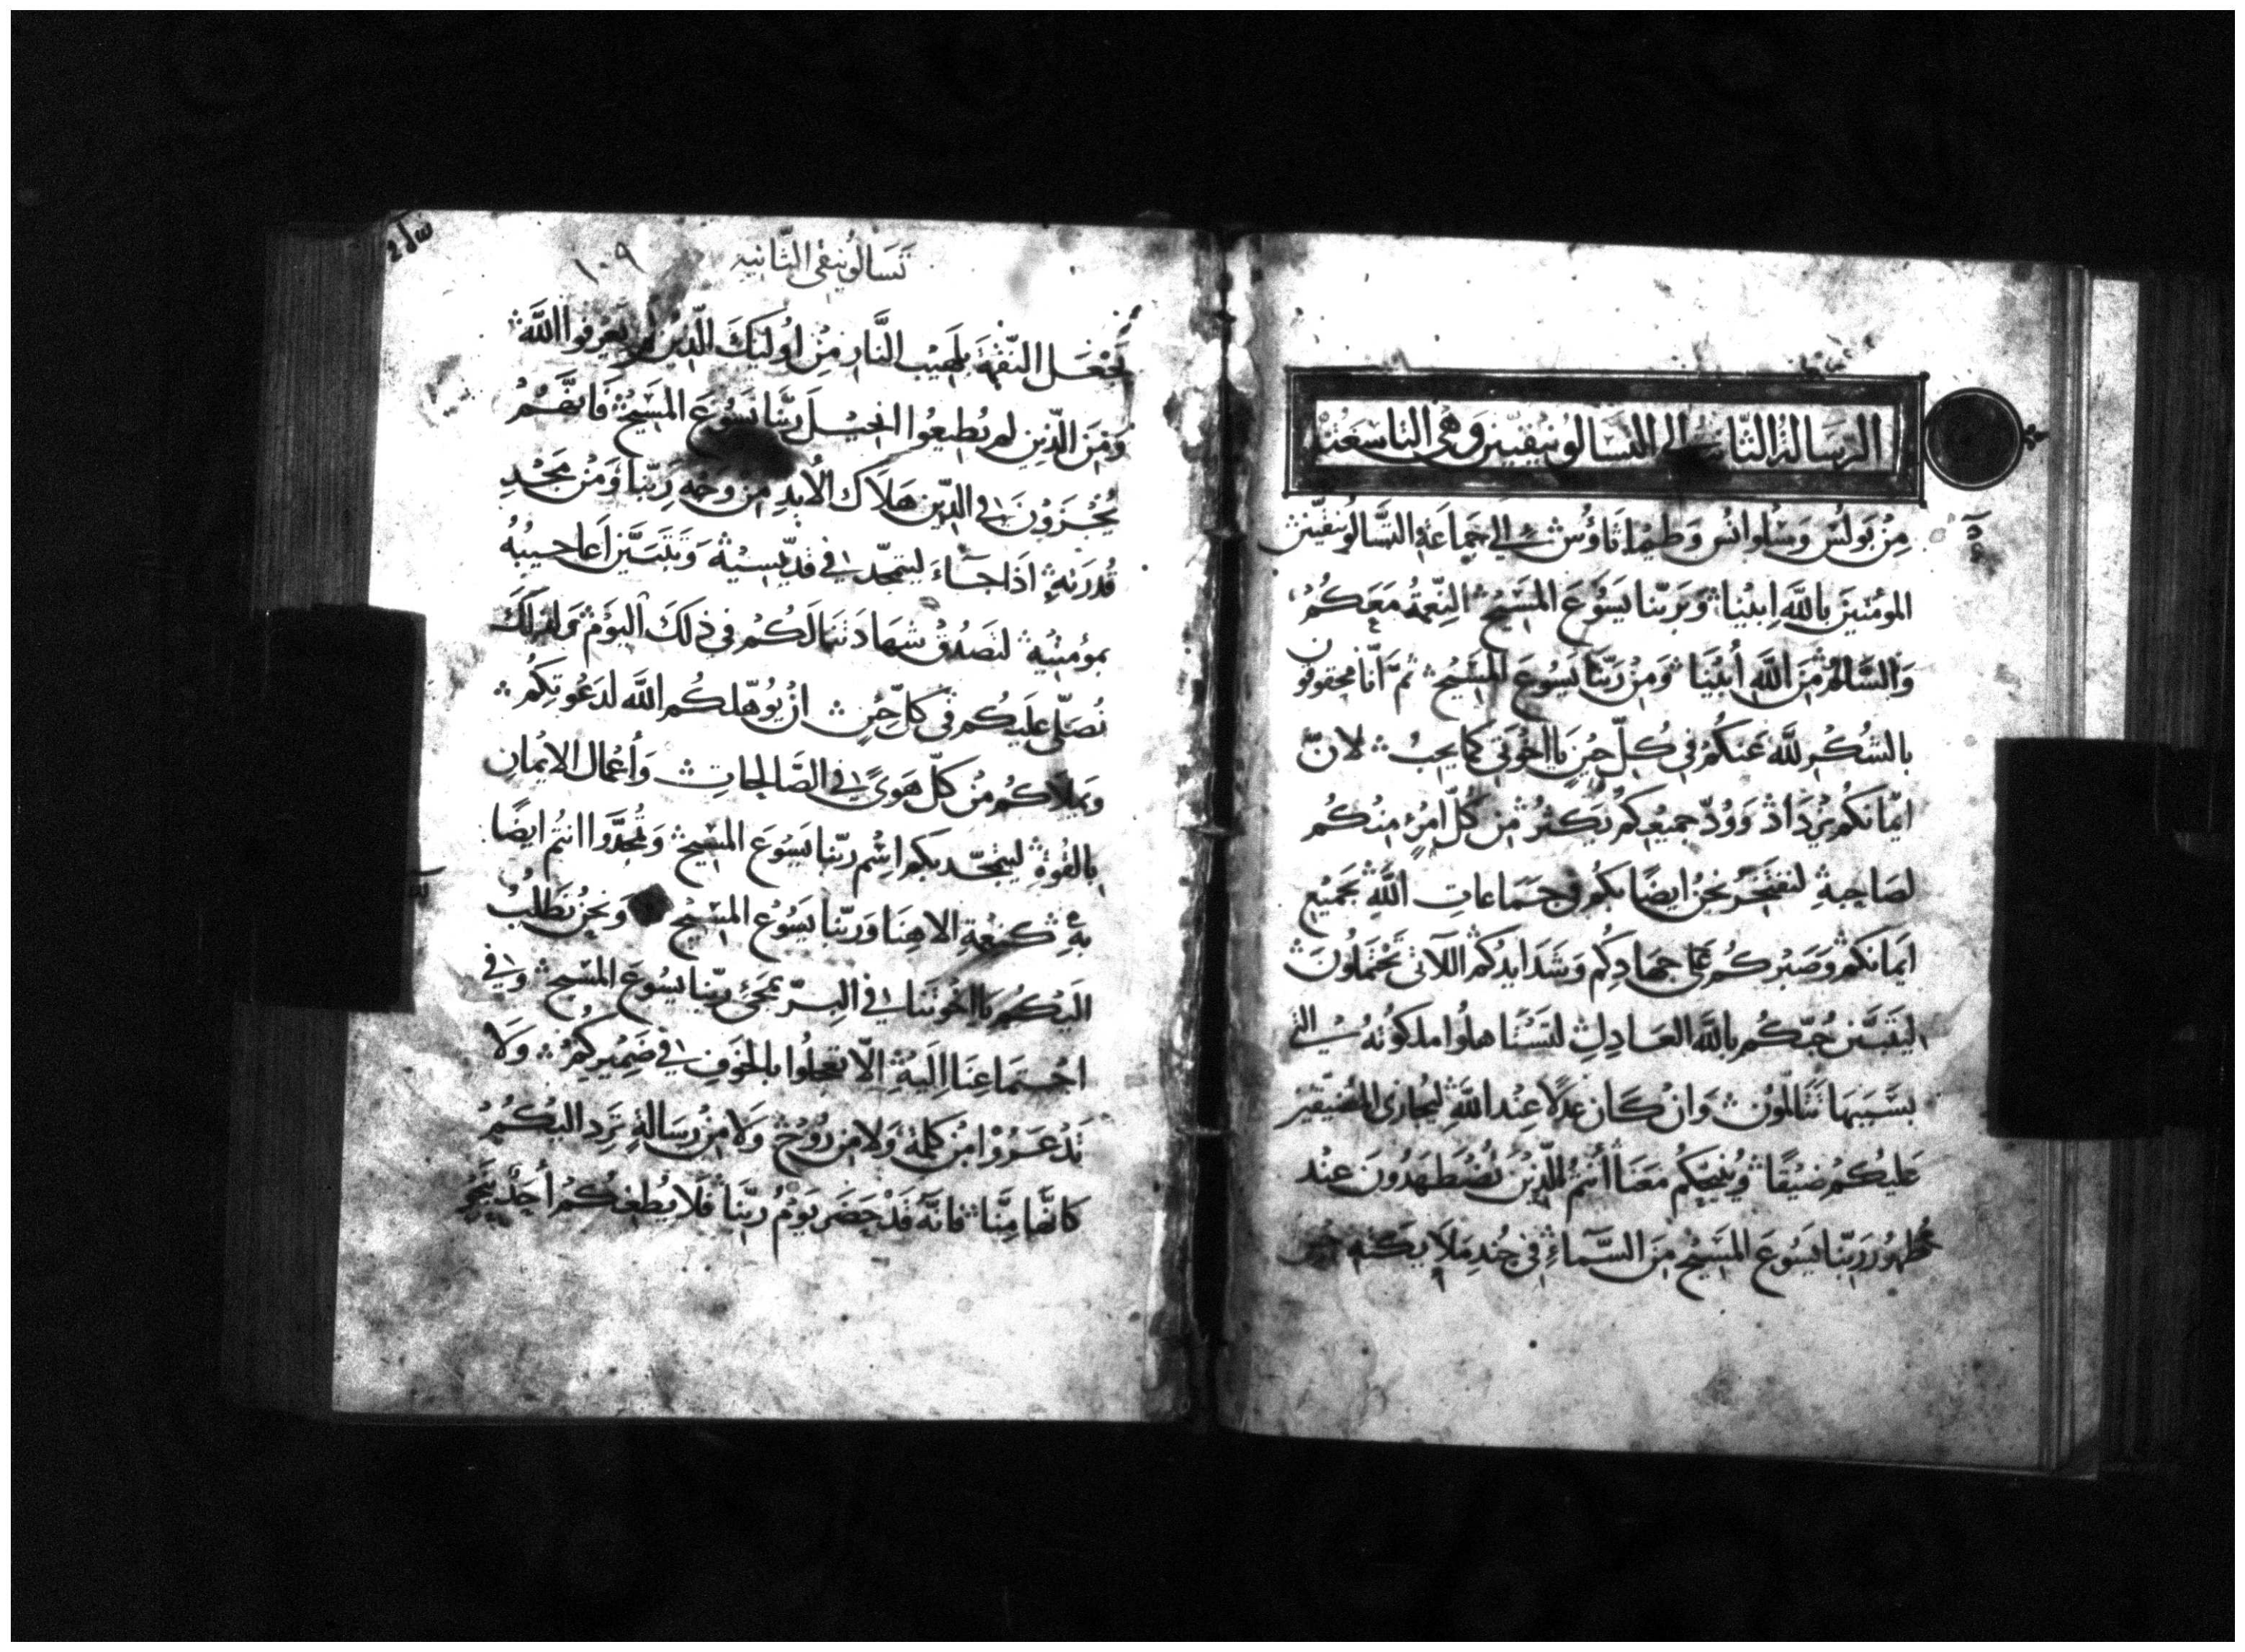 الرسالة الثانية الى التسالونيقيين وهى التاسعة
مِنْ بَولُسَ وَسُلوانُس وَطيماثاوُس إلي جَماعَةِ التَسَالُونيقيّين
المؤمنينَ باللَّهِ ابينا وَبرَبّنا يَسُوعَ المَسيحْ النِعْمَةُ مَعَكُمْ
وَالسَّلامُ مِنَ اللَّهِ أبينَا وَمِنْ رَبّنَا يَسُوعَ المَسيحْ ثمّ انّا محقوقون
بالشُكْرِ للَّه عَنكُمْ فِي كُلّ حِينٍ يا اخْوَتِي كما يجبُ لانّ
ايمانَكُم يَزْدَادُ وَوُدّ جميعكُم يَكثرُ مِنْ كُلّ امْرئٍ مِنْكُم
لصَاحِبهِ لنفتخرَ نحنُ ايضًا بكُم في جَمَاعاتِ اللَّهِ بجَميع
ايمَانكم وَصَبْركُم على جهَادِكُم وَشَدَايدكُم اللاتي تَحْتَملُونَ
ليَتَبيّن حُبّكُم باللَّهِ العَادِلِ لتَسْتَاهلُوا ملكوتهُ التي
بسَبَبهَا تتَالمُونَ وَانْ كان عدلًا عِنْد اللَّهِ ليُجازي المُضيّقين
عَليكُم ضيقًا وَيُنجيكُم مَعَنَا أنتُم الّذينْ تُضْطَهَدُونَ عنْد
ظهُور رَبّنا يَسُوعَ المَسيح مِنَ السَّماءِ فِي جُندِ مَلايكتهِ حين
تَسَالونيقى الثانيه
١٠٩
يجْعَل النقمَة بلَهيب النَّار مِنْ اوُليكَ الّذينْ لم يَعْرفوا اللَّه
وَمِنَ الّذين لم يُطيعُوا انجيلَ رَبّنا يَسُوعَ المسيحْ فَانهمْ
يُجْزَوْنَ في الدِّين هَلاكَ الأبدِ مِن وَجْهِ رَبّنا وَمْن مَجْدِ
قُدرَتهِ اذَا جَاءَ ليتمجّد في قدّيسيهْ وَيَتبَيَّن أعاجيبُهُ
بمؤمنيهْ لتصَدُقْ شهَادَتنَا لكُم في ذلكَ اليَوْم وَلذلكَ
نُصَلّي عَليكُم في كلّ حِينٍ انْ يُؤهّلكُم اللَّه لدَعْوتكُم
وَيملاكُم مِنْ كلّ هَوَىً في الصَّالحاتِ وَأعْمَال الايْمانِ
بالقوةِ ليتمجّد بكم اسْم ربّنا يَسُوعَ المسيحْ وَتُمَجَّدوا انتُم ايضًا
بهِ كنِعْمةِ الاهِنَا وَربّنا يَسُوعَ المَسيْح وَنحنُ نَطلُبُ
اليكُم يا اخْوتَنا في البِرّ بمَجئ ربّنا يَسُوعَ المسيح وَفي
اجْتمَاعِنَا الَيْهْ الّا تعجلُوا بالخَوْفِ في ضَميركُمْ وَلا
تَذْعَرُوْا مِنْ كلمةْ وَلا مِن رُوْحْ وَلا مِن رِسَالةٍ تَرِد اليْكُمْ
كأنّهَا مِنَّا فانَّهُ قَدْ حَضَر يَوْمُ ربّنَا فَلا يُطغِكُمْ أحَدٌ بنَحْوِ